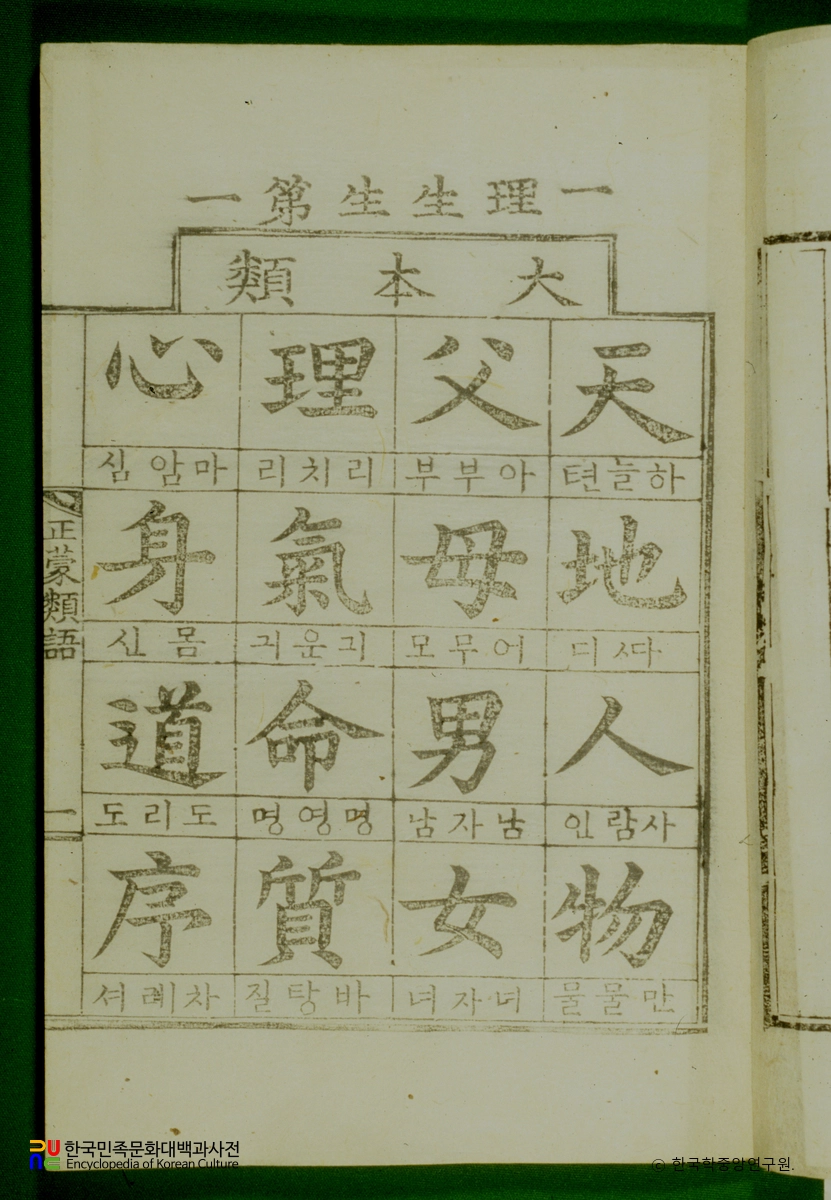 一理生生第一
大本類
天
하늘텬
地
ᄯᅡ디
人
사람인
物
만물물
父
아부부
母
어무모
男
남자남
女
녀자녀
理
리치리
氣
긔운긔
命
명영명
質
바탕질
心
마암심
身
몸신
道
도리도
序
차례셔
正蒙類語
한국민족문화대백과사전
Encyclopedia of Korean Culture
© 한국학중앙연구원.